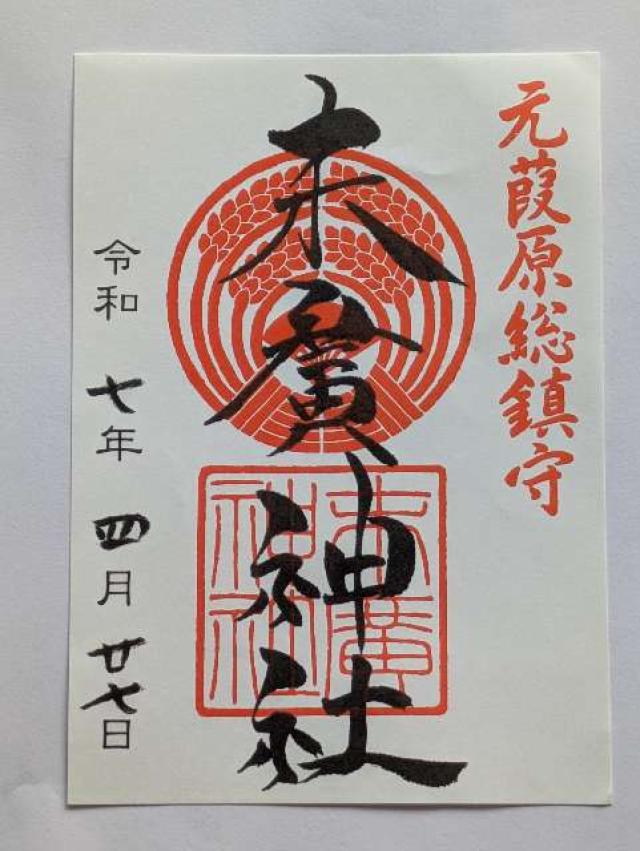 元葭原総鎮守
末廣神社
末廣
神社
令和七年四月廿七日